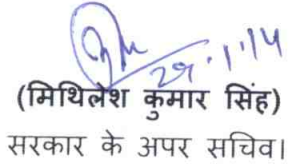 29.1.14
(मिथिलेश कुमार सिंह)
सरकार के अपर सचिव।